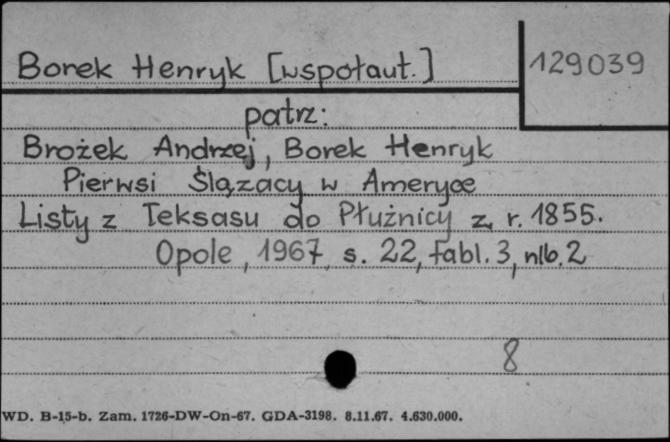 Borek Henryk [współaut.]
129039
patrz:
Brożek Andrzej, Borek Henryk
Pierwsi Ślązacy w Ameryce
Listy z Teksasu do Płużnicy z r. 1855.
Opole, 1967 s. 22, tabl. 3, nlb. 2
8
WD. B-15-b. Zam. 1726-DW-On-67. GDA-3198. 8.11.67. 4.630.000.